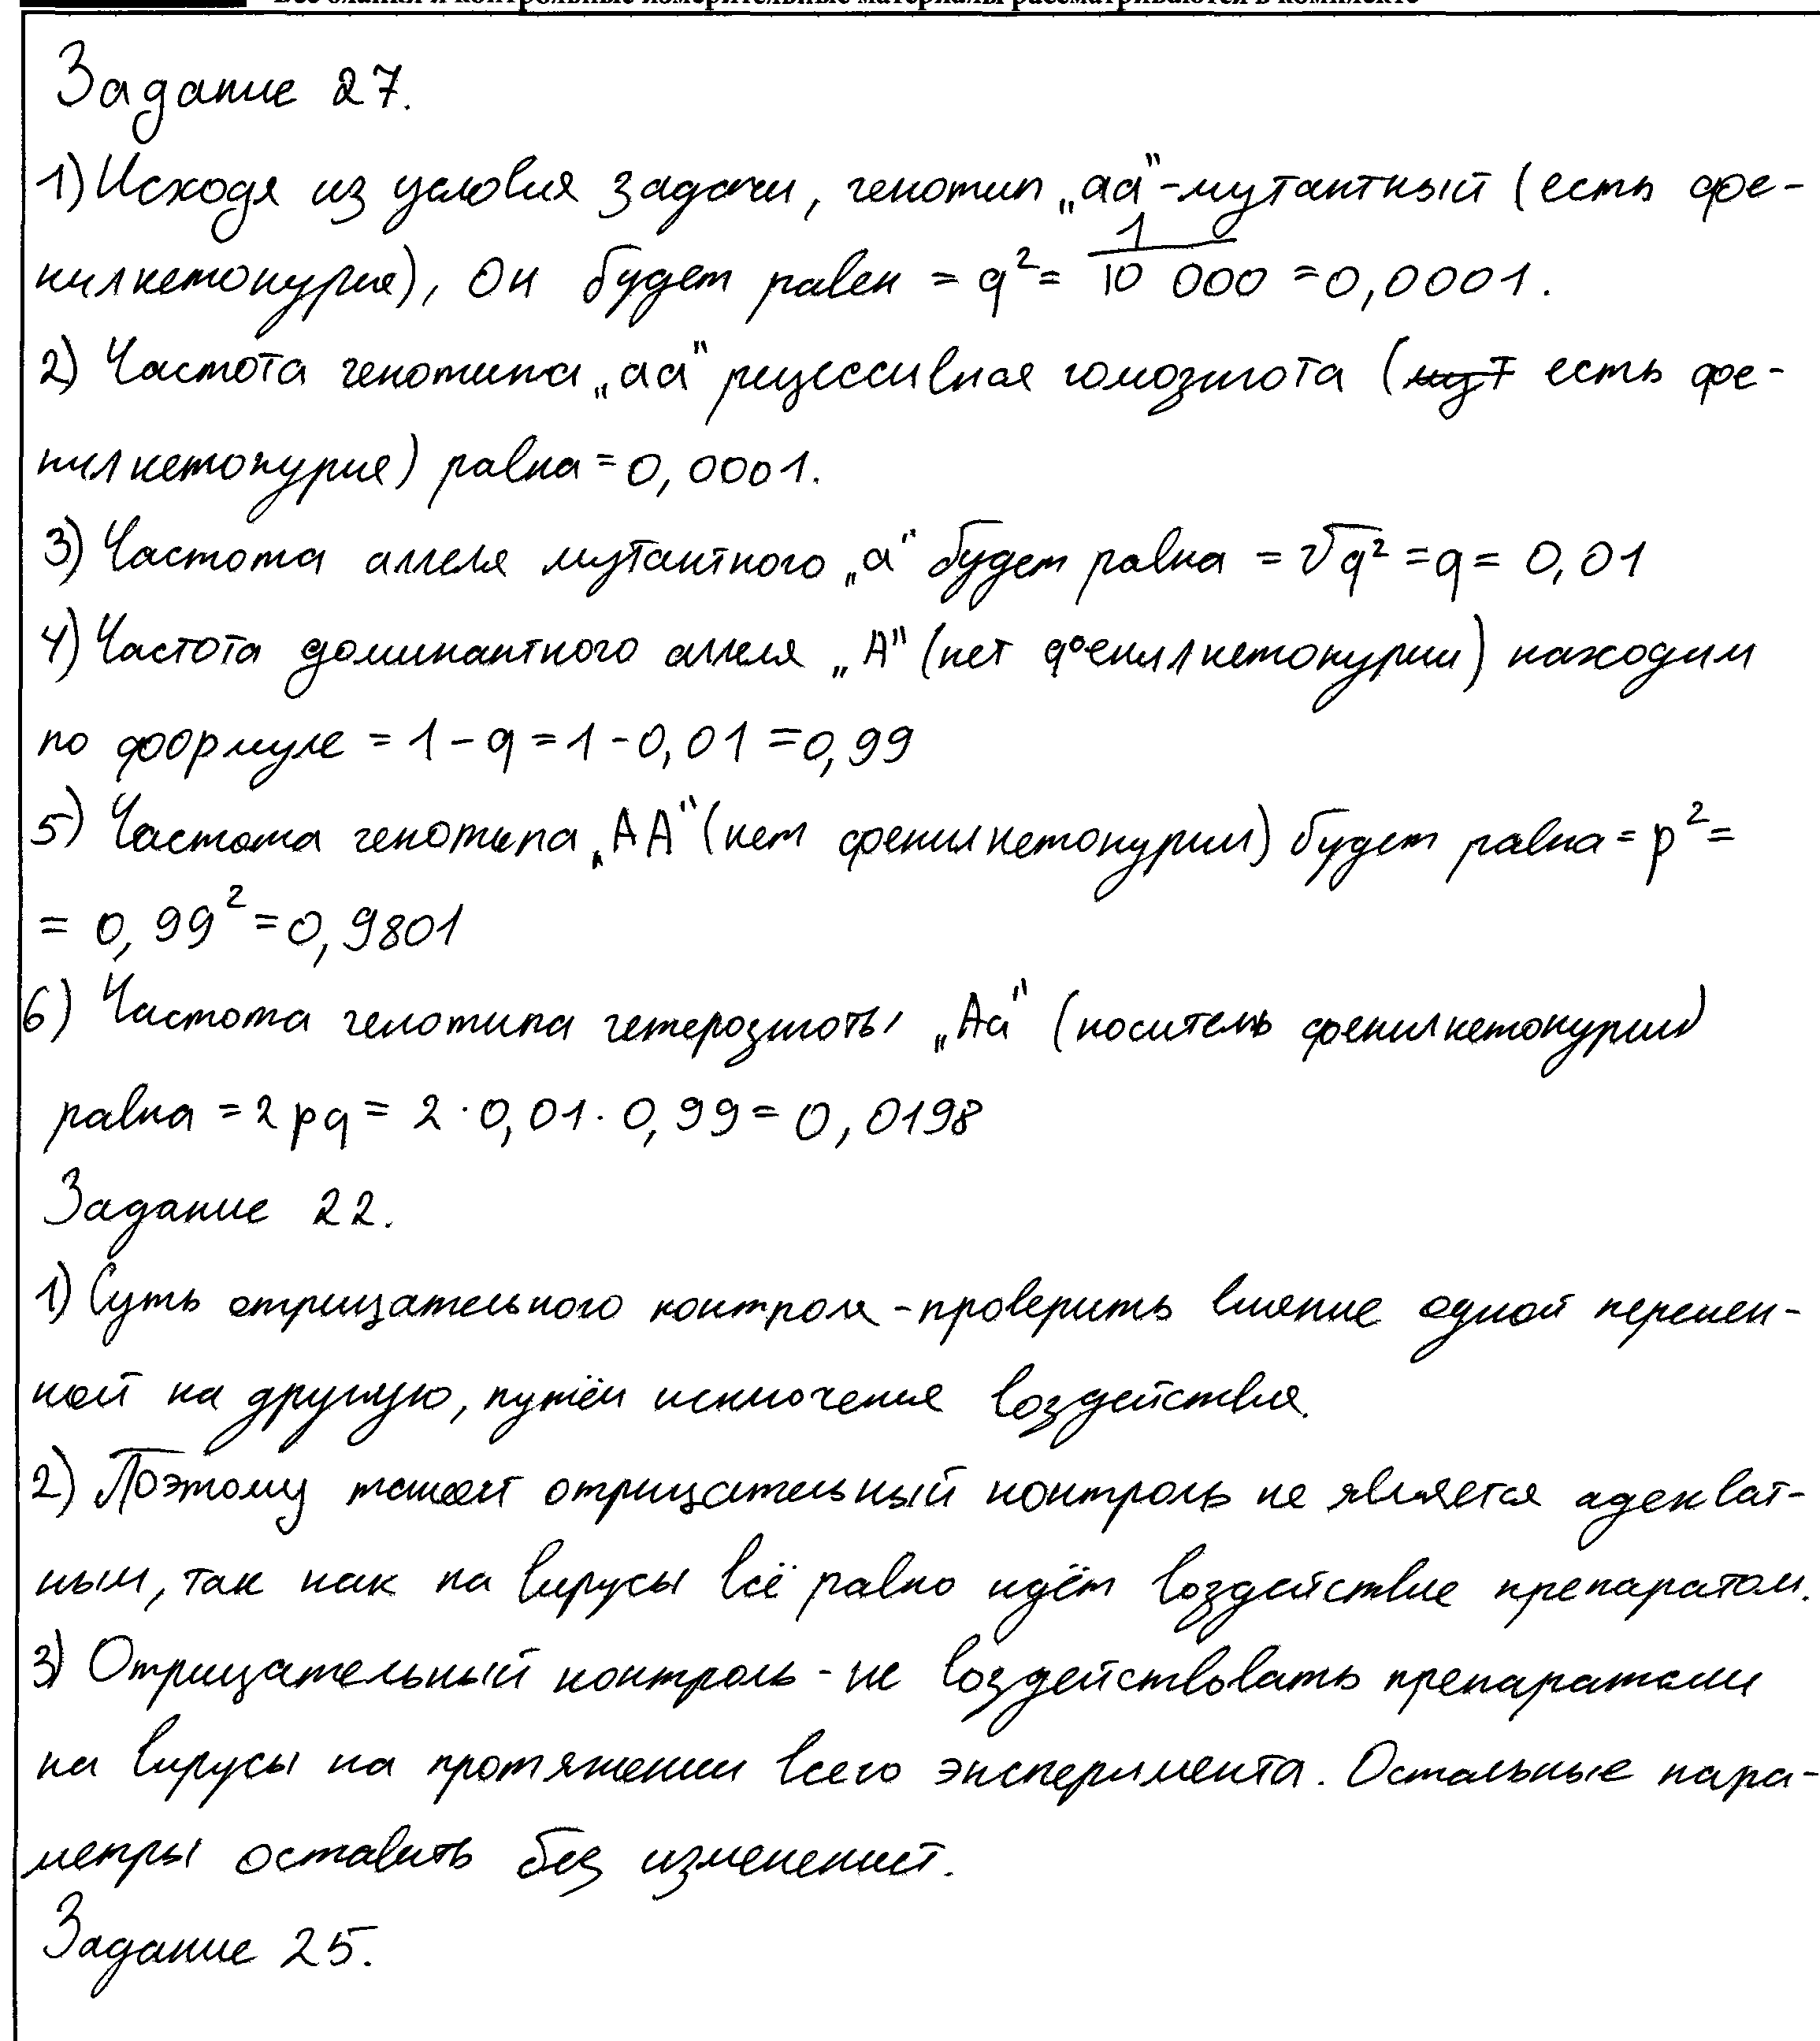 Все бланки и контрольные измерительные материалы рассматриваются в комплекте
Задание 27.
1) Исходя из условия задачи, генотип „аа“ - мутантный (есть фе-
нилкетонурия), Он будет равен = q² = 1/10 000 = 0,0001.
2) Частота генотипа „аа“ рецессивная гомозигота (есть фе-
нилкетонурия) равна = 0,0001.
3) Частота аллеля мутантного „а“ будет равна = √q² = q = 0,01
4) Частота доминантного аллеля „А“ (нет фенилкетонурии) находим
по формуле = 1 - q = 1 - 0,01 = 0,99
5) Частота генотипа „АА“ (нет фенилкетонурии) будет равна = p² =
= 0,99² = 0,9801
6) Частота генотипа гетерозиготы „Аа“ (носитель фенилкетонурии)
равна = 2pq = 2 · 0,01 · 0,99 = 0,0198
Задание 22.
1) Суть отрицательного контроля - проверить влияние одной перемен-
ной на другую, путём исключения воздействия.
2) Поэтому такой отрицательный контроль не является адекват-
ным, так как на вирусы всё равно идёт воздействие препаратом.
3) Отрицательный контроль - не воздействовать препаратами
на вирусы на протяжении всего эксперимента. Остальные пара-
метры оставить без изменений.
Задание 25.